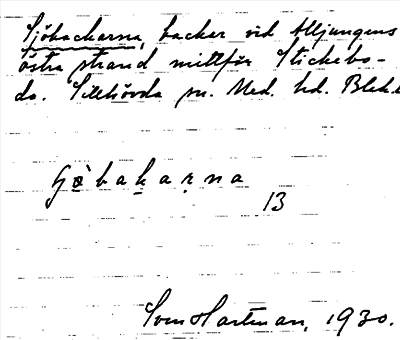 Sjöbackarna, backar vid Alljungens
östra strand mittför Stickebo-
da. Sillhövda sn. Med. hd. Blek.
13
Sven Hartman, 1930.